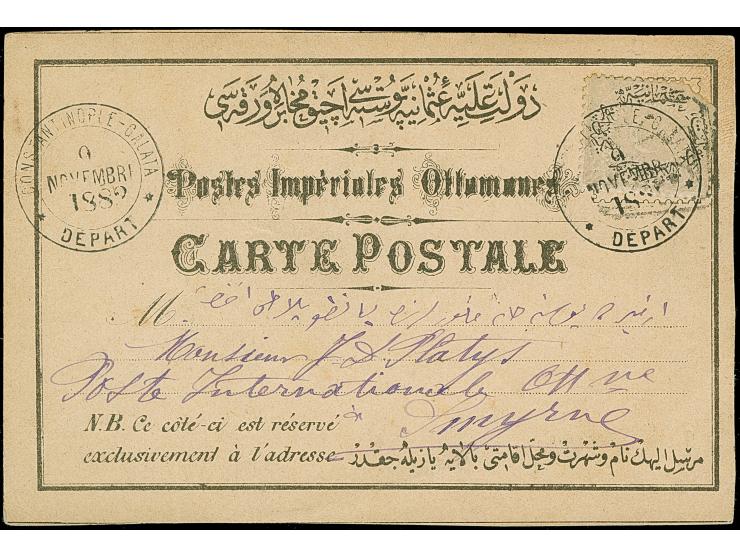 دولت علیهٔ عثمانیه پوسته سی آچیق مخابره ورقه سی
CONSTANTINOPLE-GALATA
9
NOVEMBRE
1882
* DÉPART *
9
NOVEMBR
188
* DÉPART *
Postes Impériales Ottomanes
CARTE POSTALE
M.
Monsieur J. D. Platys
Poste Internationale Ottne
à Smyrne
N.B. Ce côté-ci est réservé
exclusivement à l'adresse
مرسل الیهك نام و شهرت و محل اقامتی بالایه یازیله جقدر